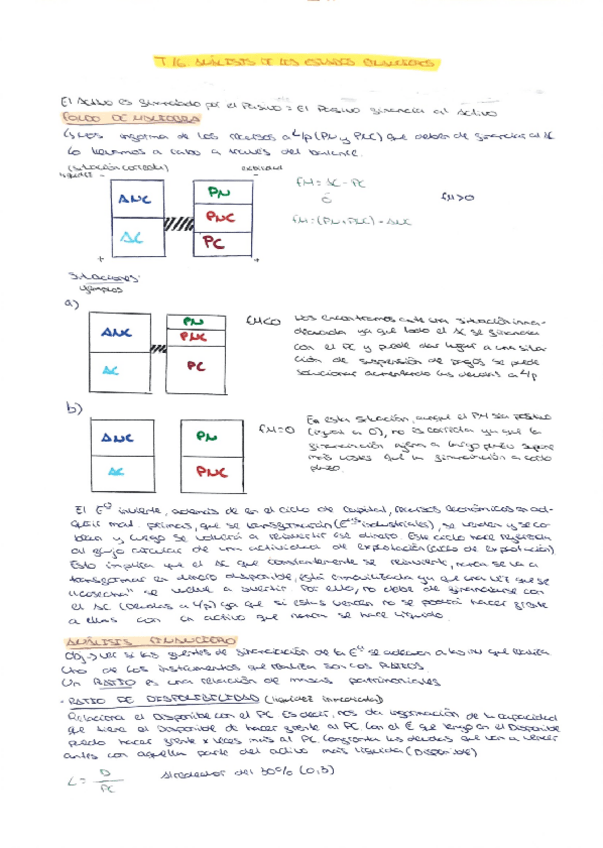 T.16 ANÁLISIS DE LOS ESTADOS FINANCIEROS
El Activo es financiado por el Pasivo = El Pasivo financia al Activo
FONDO DE MANIOBRA
Nos informa de los recursos a L/p (PN y PNC) que deben de financiar al AC
Lo llevamos a cabo a través del balance.
(situación correcta)
liquidez
exigibilidad
ANC
AC
PN
PNC
PC
FM = AC - PC
ó
FM = (PN + PNC) - ANC
FM>0
Situaciones:
ejemplos
a)
ANC
AC
PN
PNC
PC
FM<0
Nos encontramos ante una situación
ya que todo el AC se financia
con el PC y puede dar lugar a una situa-
ción de suspensión de pagos se puede
solucionar aumentando las deudas a L/p
b)
ANC
AC
PN
PNC
FM=0
En esta situación, aunque el FM sea positivo
(igual a 0), no es correcta ya que la
financiación ajena a largo plazo supone
más costes que la financiación a corto
plazo.
El invierte, además de en el ciclo de capital, recursos económicos en ad-
quirir mat. primas, que se transforman (industriales), se venden y se co-
bran y luego se volverá a reinvertir ese dinero. Este ciclo hace
al flujo circular de una actividad de explotación (ciclo de explotación)
Esto implica que el AC que constantemente se reinvierte, nunca se va a
transformar en dinero disponible, está inmovilizada ya que una vez que se
"cosecha" se vuelve a invertir. Por ello, no debe de financiarse con
el (deudas a ) ya que si estas vencen no se podrá hacer frente
a ellas con un activo que nunca se hace líquido.
ANÁLISIS FINANCIERO
Obj → Ver si las fuentes de financiación de la se adecuan a la que realiza
Uno de los instrumentos que realiza son los RATIOS.
Un RATIO es una relación de masas patrimoniales
- RATIO DE DISPONIBILIDAD (liquidez inmediata)
Relaciona el Disponible con el PC. Es decir, nos da información de la capacidad
que tiene el Disponible de hacer frente al PC. Con el € que tengo en el Disponible
puedo hacer frente x veces más al PC. Confronta las deudas que van a vencer
antes con aquella parte del activo más líquida (Disponible)
L = D / PC
Alrededor del 30% (0,3)